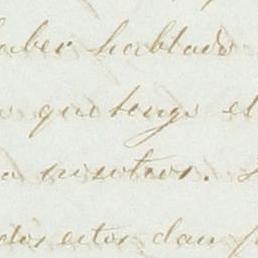 haber hablado
que tengo el
a nosotros.
estos dan